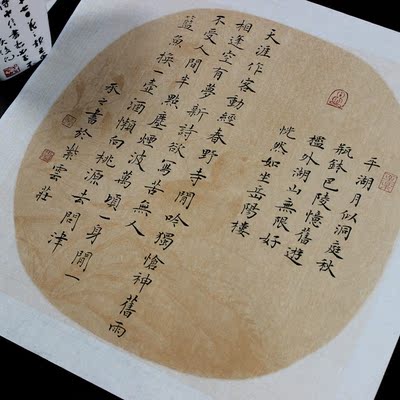 平湖月似洞庭秋
瓶鉢巴陵憶舊遊
檻外湖山無限好
恍然如坐岳陽樓
天涯作客動經春野寺閒吟獨愴神舊雨
相逢空有夢新詩欲寫苦無人
不受人間半點塵煙波萬頃一身閒一
籃魚換一壺酒懶向桃源去問津
永之書於紫雲莊